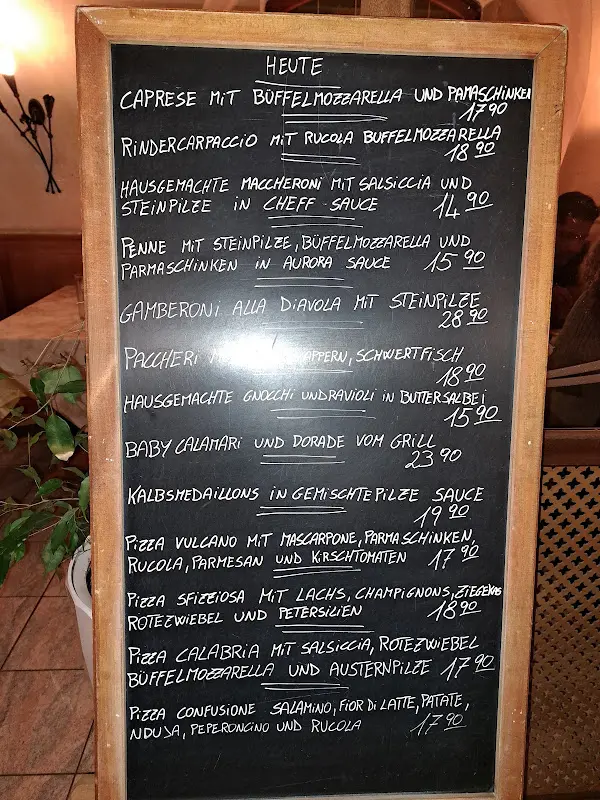 HEUTE
CAPRESE MIT BÜFFELMOZZARELLA UND PAMASCHINKEN
17 90
RINDERCARPACCIO MIT RUCOLA BUFFELMOZZARELLA
18 90
HAUSGEMACHTE MACCHERONI MIT SALSICCIA UND
STEINPILZE IN CHEFF SAUCE 14 90
PENNE MIT STEINPILZE, BÜFFELMOZZARELLA UND
PARMASCHINKEN IN AURORA SAUCE 15 90
GAMBERONI ALLA DIAVOLA MIT STEINPILZE
28 90
PACCHERI SCHWERTFISCH
18 90
HAUSGEMACHTE GNOCCHI UND RAVIOLI IN BUTTERSALBEI
15 90
BABY CALAMARI UND DORADE VOM GRILL
23 90
KALBSMEDAILLONS IN GEMISCHTEPILZE SAUCE
19 90
PIZZA VULCANO MIT MASCARPONE, PARMASCHINKEN,
RUCOLA, PARMESAN UND KIRSCHTOMATEN 17 90
PIZZA SFIZZIOSA MIT LACHS, CHAMPIGNONS,
ROTEZWIEBEL UND PETERSILIEN 18 90
PIZZA CALABRIA MIT SALSICCIA, ROTEZWIEBEL
BÜFFELMOZZARELLA UND AUSTERNPILZE 17 90
PIZZA CONFUSIONE SALAMINO, FIOR DI LATTE, PATATE,
NDUJA, PEPERONCINO UND RUCOLA 17 90